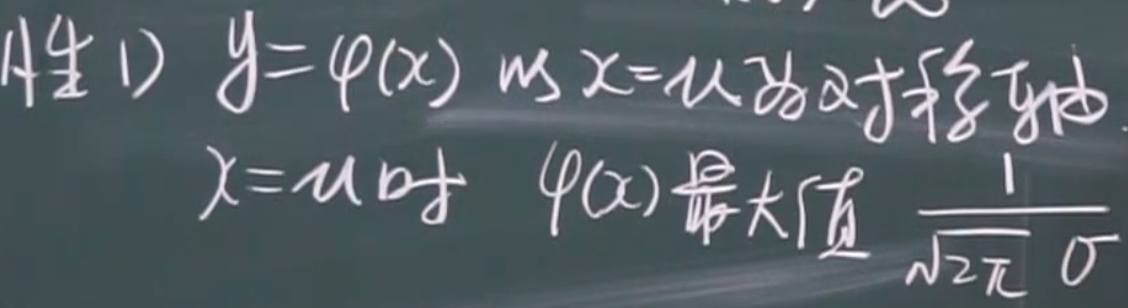 性 1) y=φ(x) 以 x=μ为对称轴.
x=μ时 φ(x)最大值 1/(√2π σ)